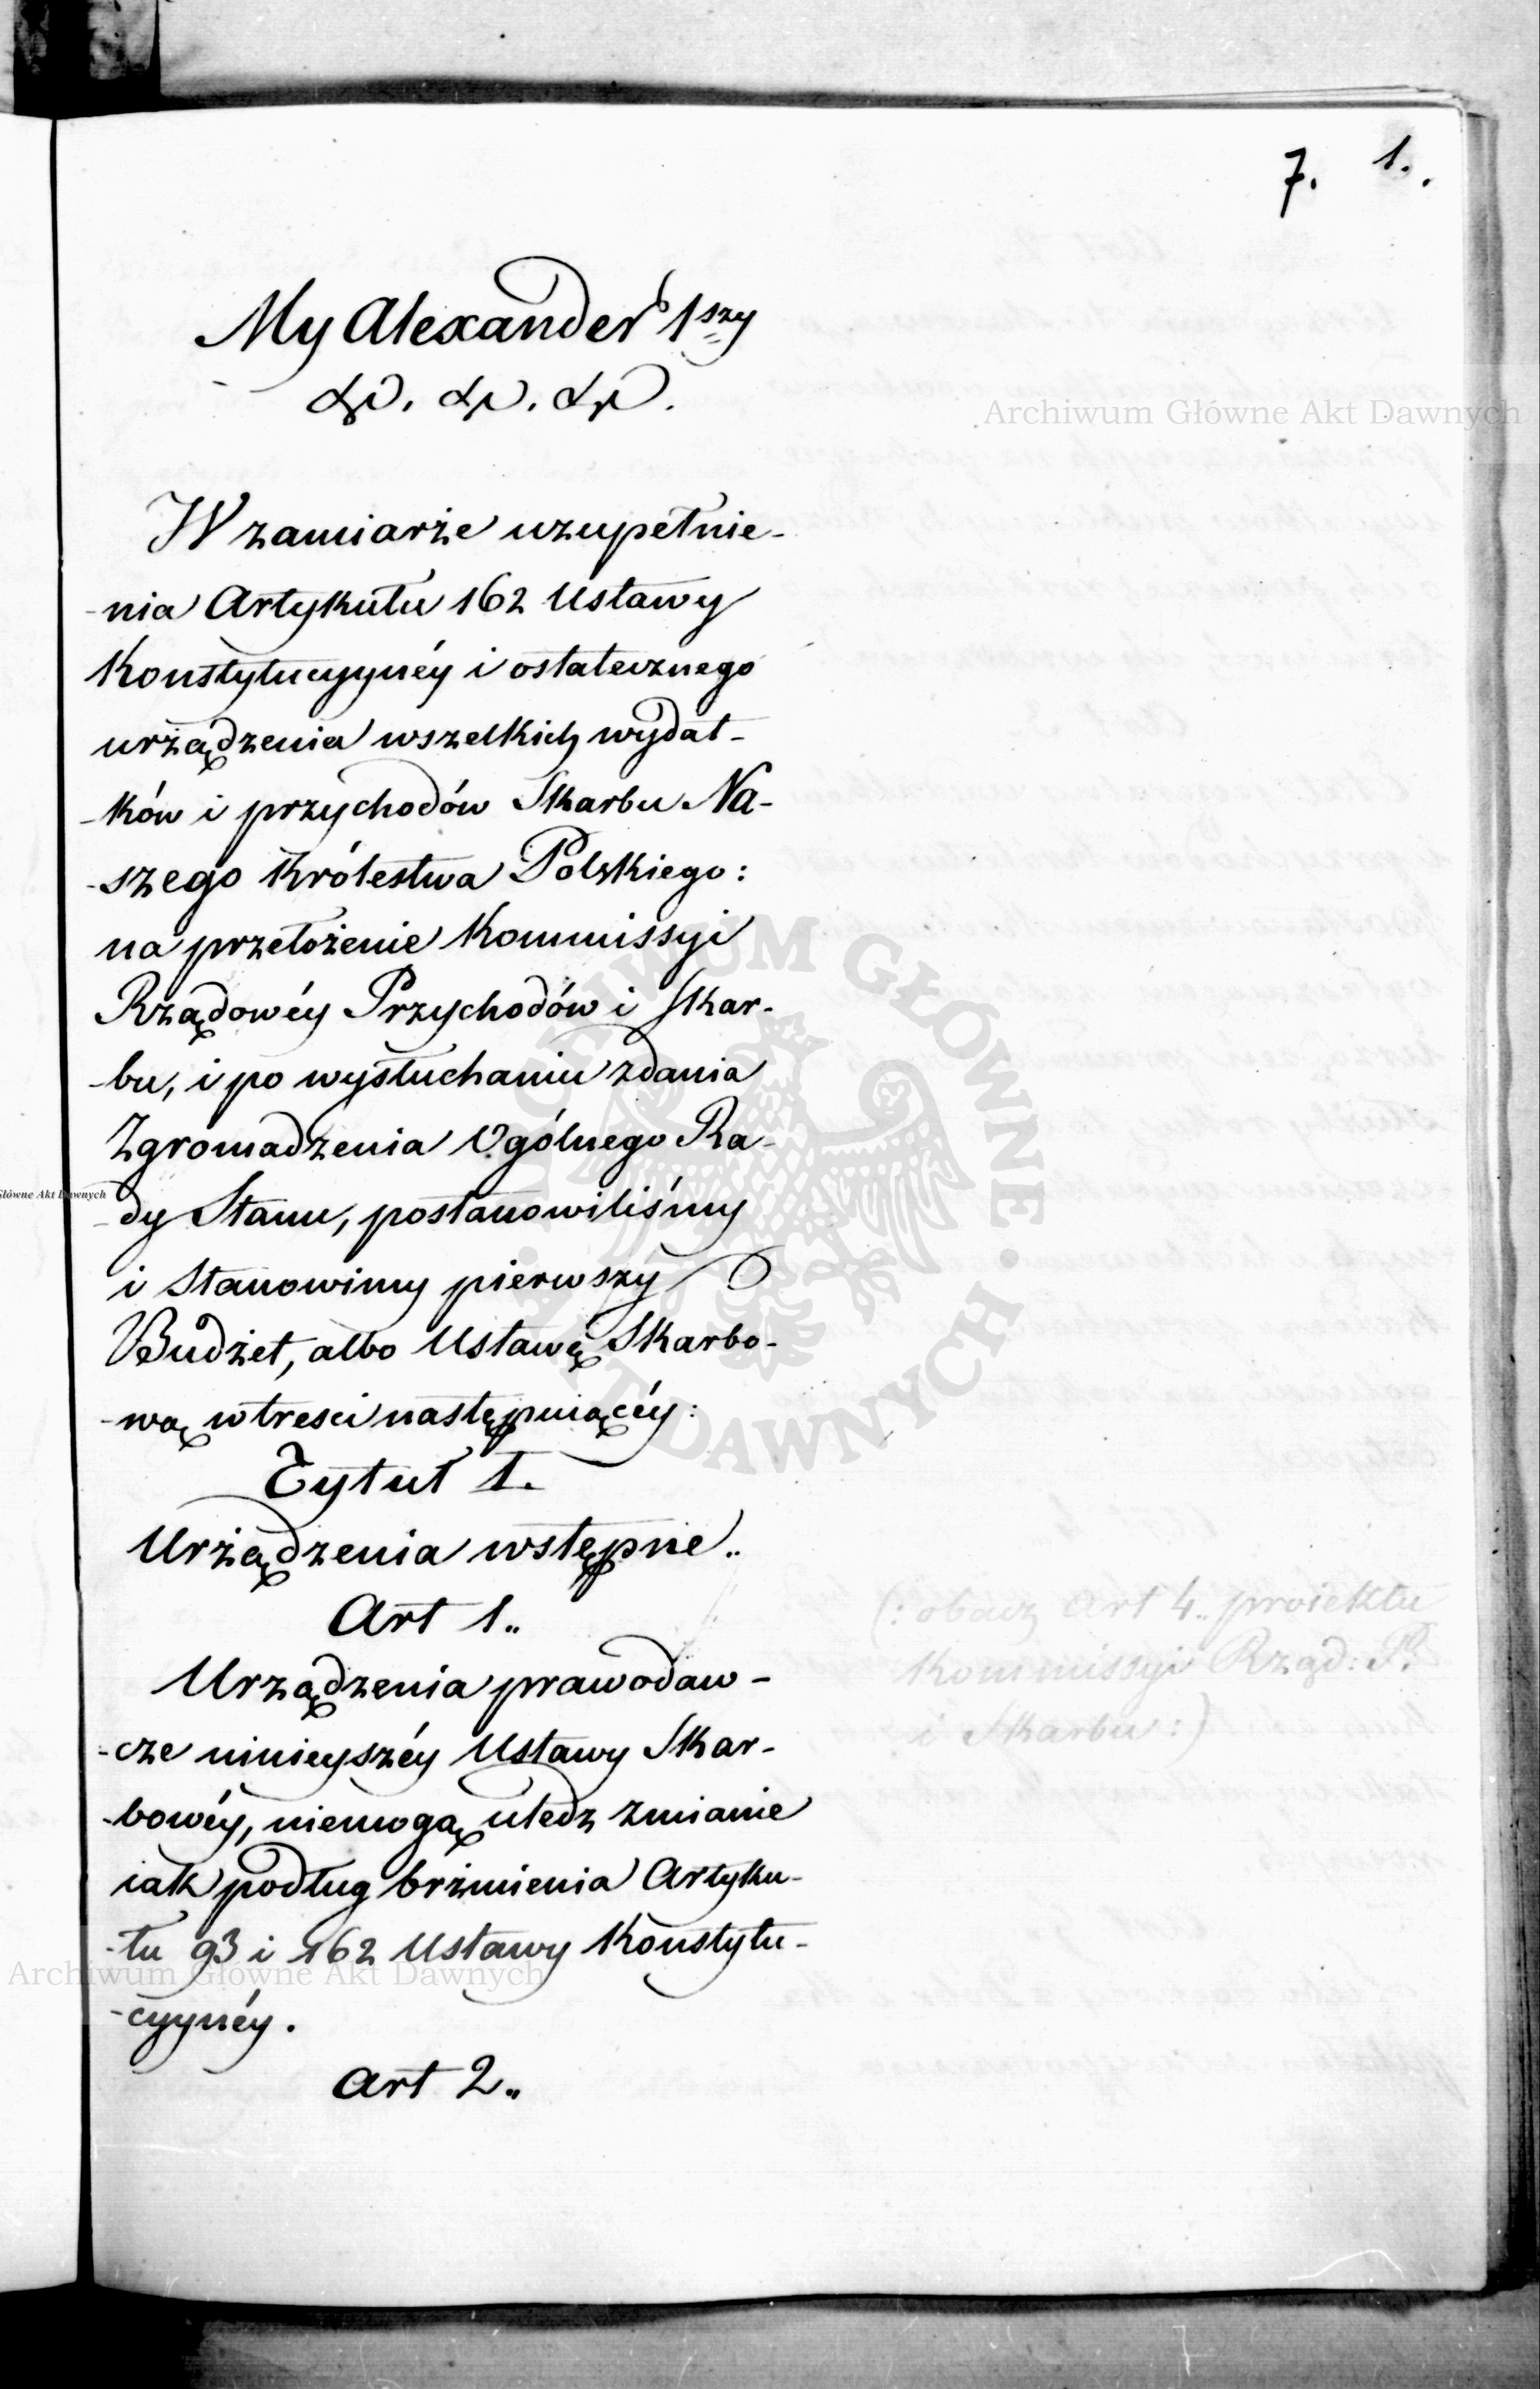 7. 1.
My Alexander 1szy
&c. &c. &c.
W zamiarże uzupełnie-
-nia Artykułu 162 Ustawy
Konstytucyynéy i ostatecznego
urżądzenia wszelkich wydat-
-ków i przychodów Skarbu Na-
-szego Królestwa Polskiego:
na przełożenie Kommissyi
Rządowéy Przychodów i Skar-
-bu, i po wysłuchaniu zdania
Zgromadzenia Ogólnego Ra-
-dy Stanu, postanowiliśmy
i Stanowimy pierwszy
Budżet, albo Ustawę Skarbo-
-wą w tresci następuiącéy:
Tytuł I.
Urżądzenia wstępne.
Art 1.
Urządzenia prawodaw-
-cze ninieyszéy Ustawy Skar-
-bowéy, niemogą uledz zmianie
iak podług brżmienia Artyku-
-łu 93 i 162 Ustawy Konstytu-
-cyynéy.
Art 2.
(: obacz Art 4. proiektu
Kommissyi Rząd: P.
i Skarbu :)
Archiwum Główne Akt Dawnych
ARCHIWUM GŁÓWNE AKT DAWNYCH
Główne Akt Dawnych
Archiwum Główne Akt Dawnych